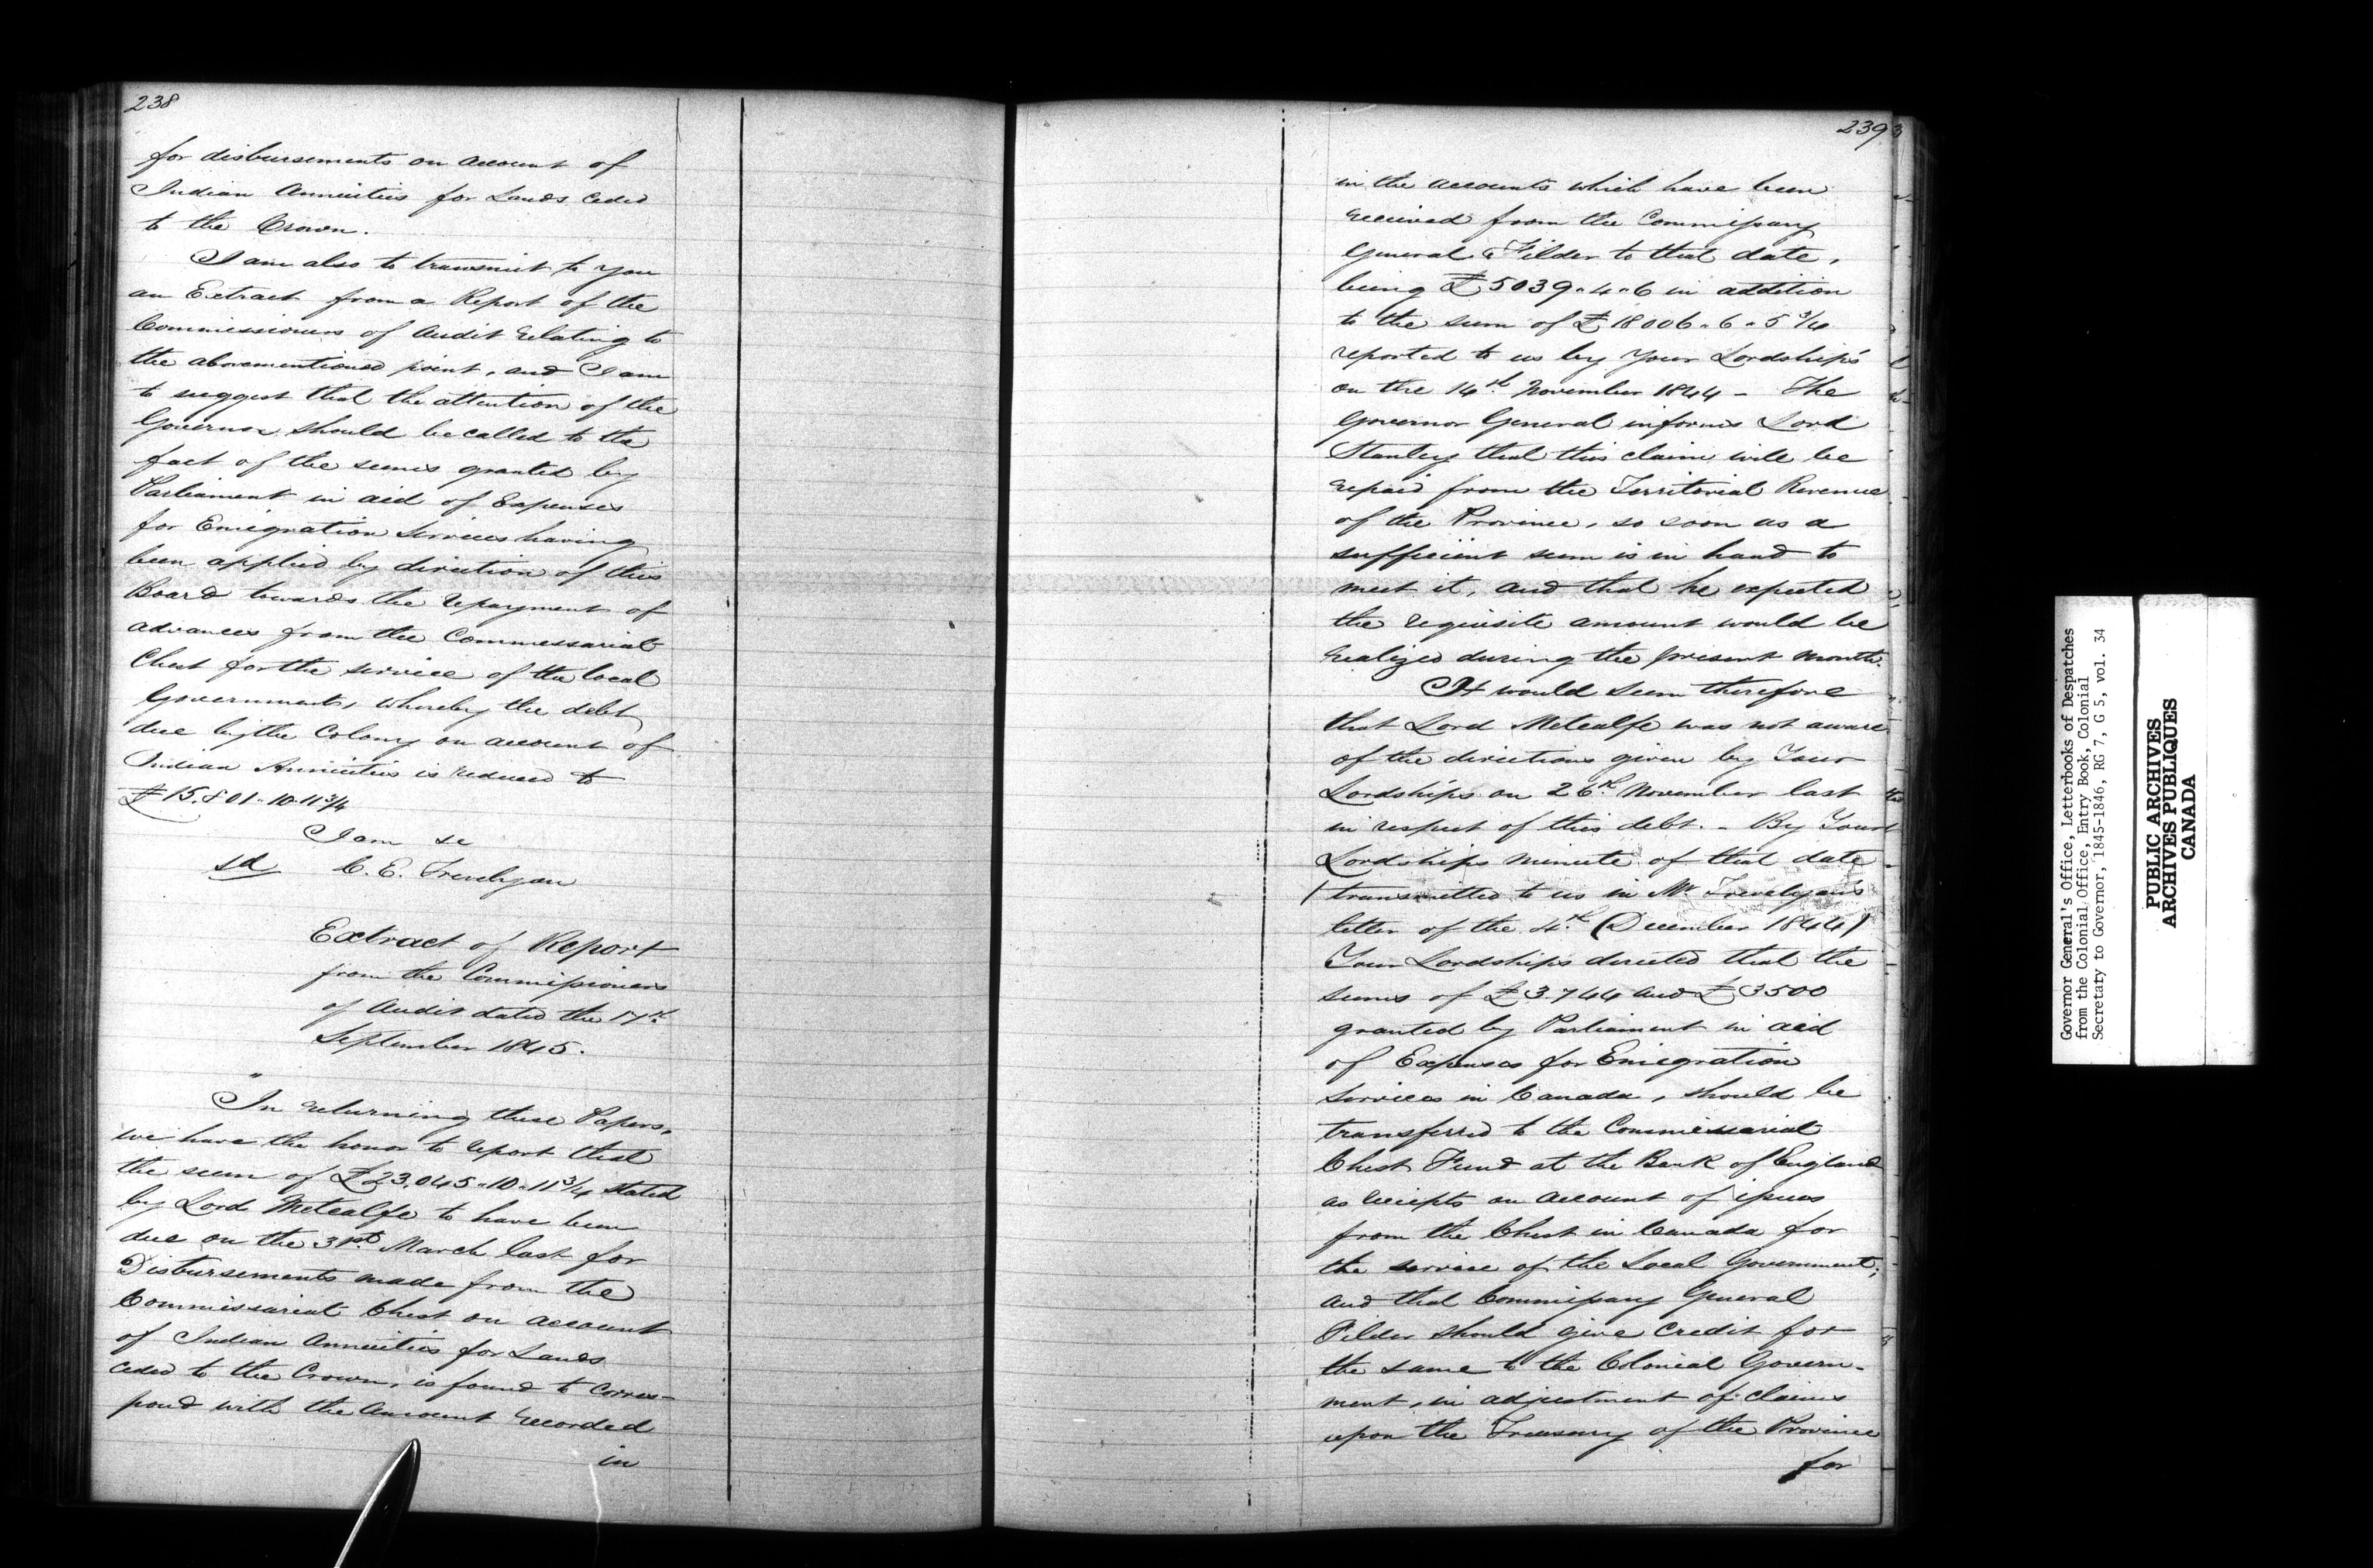 238
for disbursements on account of
Indian Annuities for Lands ceded
to the Crown.
I am also to transmit to you
an Extract from a Report of the
Commissioners of Audit relating to
the abovementioned point, and I am
to suggest that the attention of the
Governor should be called to the
fact of the sums granted by
Parliament in aid of Expenses
for Emigration Services having
been applied by direction of this
Board towards the repayment of
advances from the Commissariat
Chest for the service of the local
Government, whereby the debt
due by the Colony on account of
Indian Annuities is reduced to
£15.801-10-11 3/4
I am &c
sd C. E. Trevelyan
Extract of Report
from the Commissioners
of Audit dated the 17th
September 1845.
"In returning these Papers,
we have the honor to report that
the sum of £23.045-10-11 3/4 stated
by Lord Metcalfe to have been
due on the 31st March last for
Disbursements made from the
Commissariat Chest on account
of Indian Annuities for Lands
ceded to the Crown, is found to corres-
pond with the Amount recorded
in
239
in the accounts which have been
received from the Commissary
General Filder to that date,
being £5039-4-6 in addition
to the sum of £18006-6-5 3/4
reported to us by Your Lordships
on the 14th November 1844 - The
Governor General informs Lord
Stanley that this claim will be
repaid from the Territorial Revenue
of the Province, so soon as a
sufficient sum is in hand to
meet it, and that he expected
the requisite amount would be
realized during the present month.
It would seem therefore
that Lord Metcalfe was not aware
of the directions given by Your
Lordships on 26th November last
in respect of this debt. - By Your
Lordships minute of that date
(transmitted to us in Mr Trevelyan's
letter of the 4th December 1844)
Your Lordships directed that the
sums of £3.744 and £3500
granted by Parliament in aid
of Expenses for Emigration
Services in Canada, should be
transferred to the Commissariat
Chest Fund at the Bank of England
as receipts on account of issues
from the Chest in Canada for
the service of the Local Government;
and that Commissary General
Filder should give credit for
the same to the Colonial Govern-
ment, in adjustment of claims
upon the Treasury of the Province
for
Governor General's Office, Letterbooks of Despatches
from the Colonial Office, Entry Book, Colonial
Secretary to Governor, 1845-1846, RG 7, G 5, vol. 34
PUBLIC ARCHIVES
ARCHIVES PUBLIQUES
CANADA